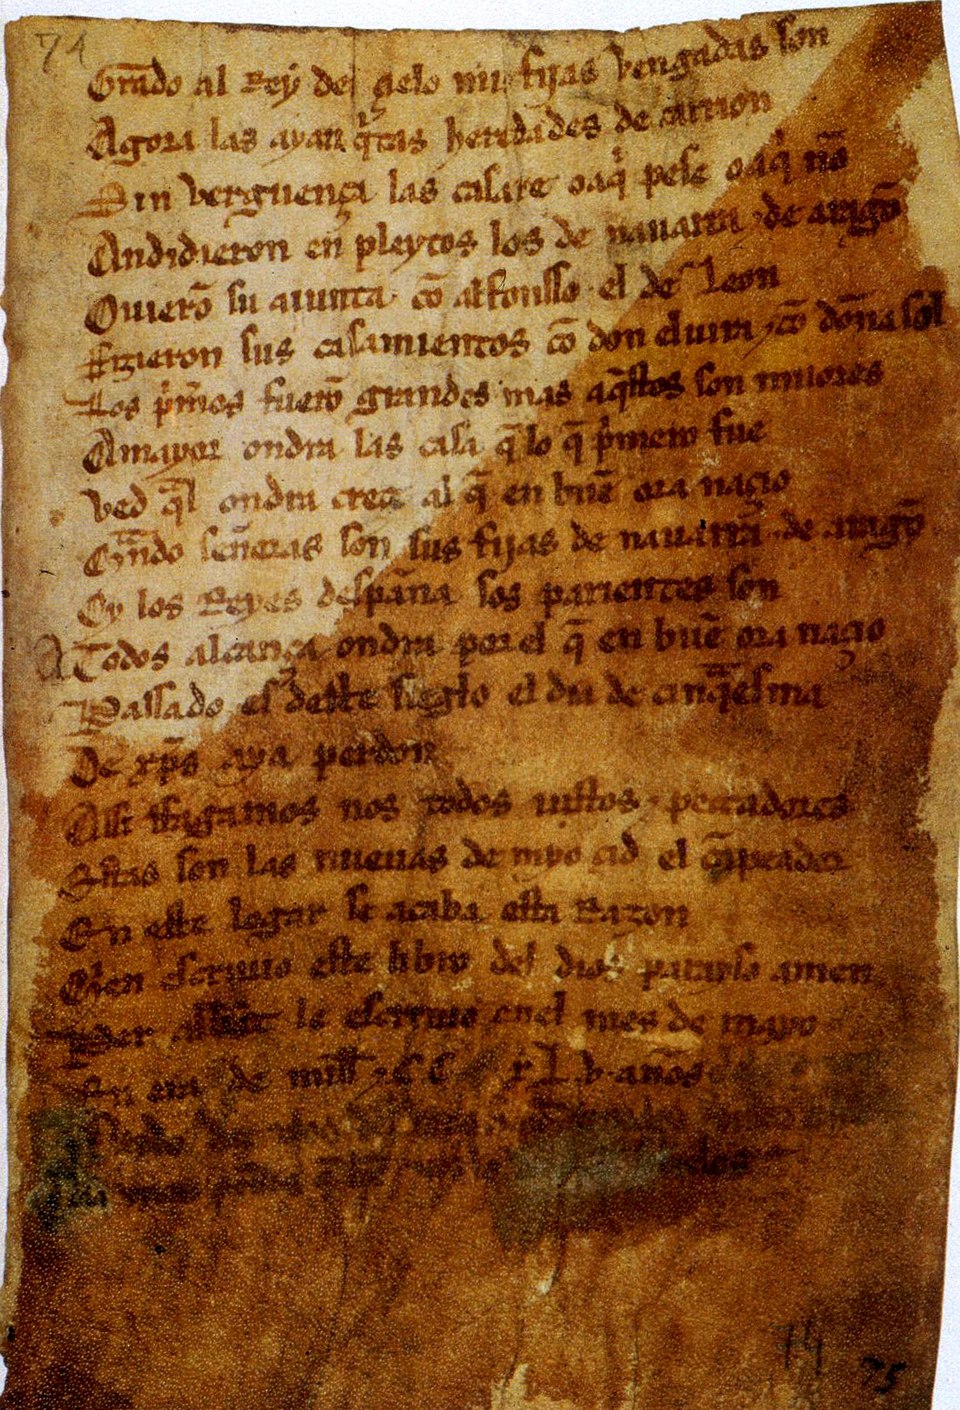 74
Grãdo al Rey del çielo mis fijas vengadas son
Agora las ayan q̃tas heredades de carrion
Sin verguença las casare o aq̃ pese o a q̃ nõ
Andidieron en pleytos los de nauarra ⁊ de aragõ
Ouierõ su aiunta cõ alfonsso el de Leon
Fizieron sus casamientos cõ don eluira ⁊ cõ doña sol
Los p̃meros fuerõ grandes mas aq̃stos son miiores
A mayor ondra las casa q̃ lo q̃ p̃mero fue
Ved q̃l ondra creçe al q̃ en buẽ ora naçio
Q̃ndo señoras son sus fijas de nauarra ⁊ de aragõ
Oy los Reyes despaña sos parientes son
A Todos alcança ondra por el q̃ en buẽ ora naçio
Passado es deste sieglo el dia de cinq̃esma
De xp̃s aya perdon
Assi ffagamos nos todos iustos ⁊ peccadores
Estas son las nueuas de myo çid el cãpeador
En este logar se acaba esta Razon
Quien escriuio este libro del dios parayso amen
Per abbat le escriuio enel mes de mayo
En era de mill ⁊ CC xL.v. años
74
75